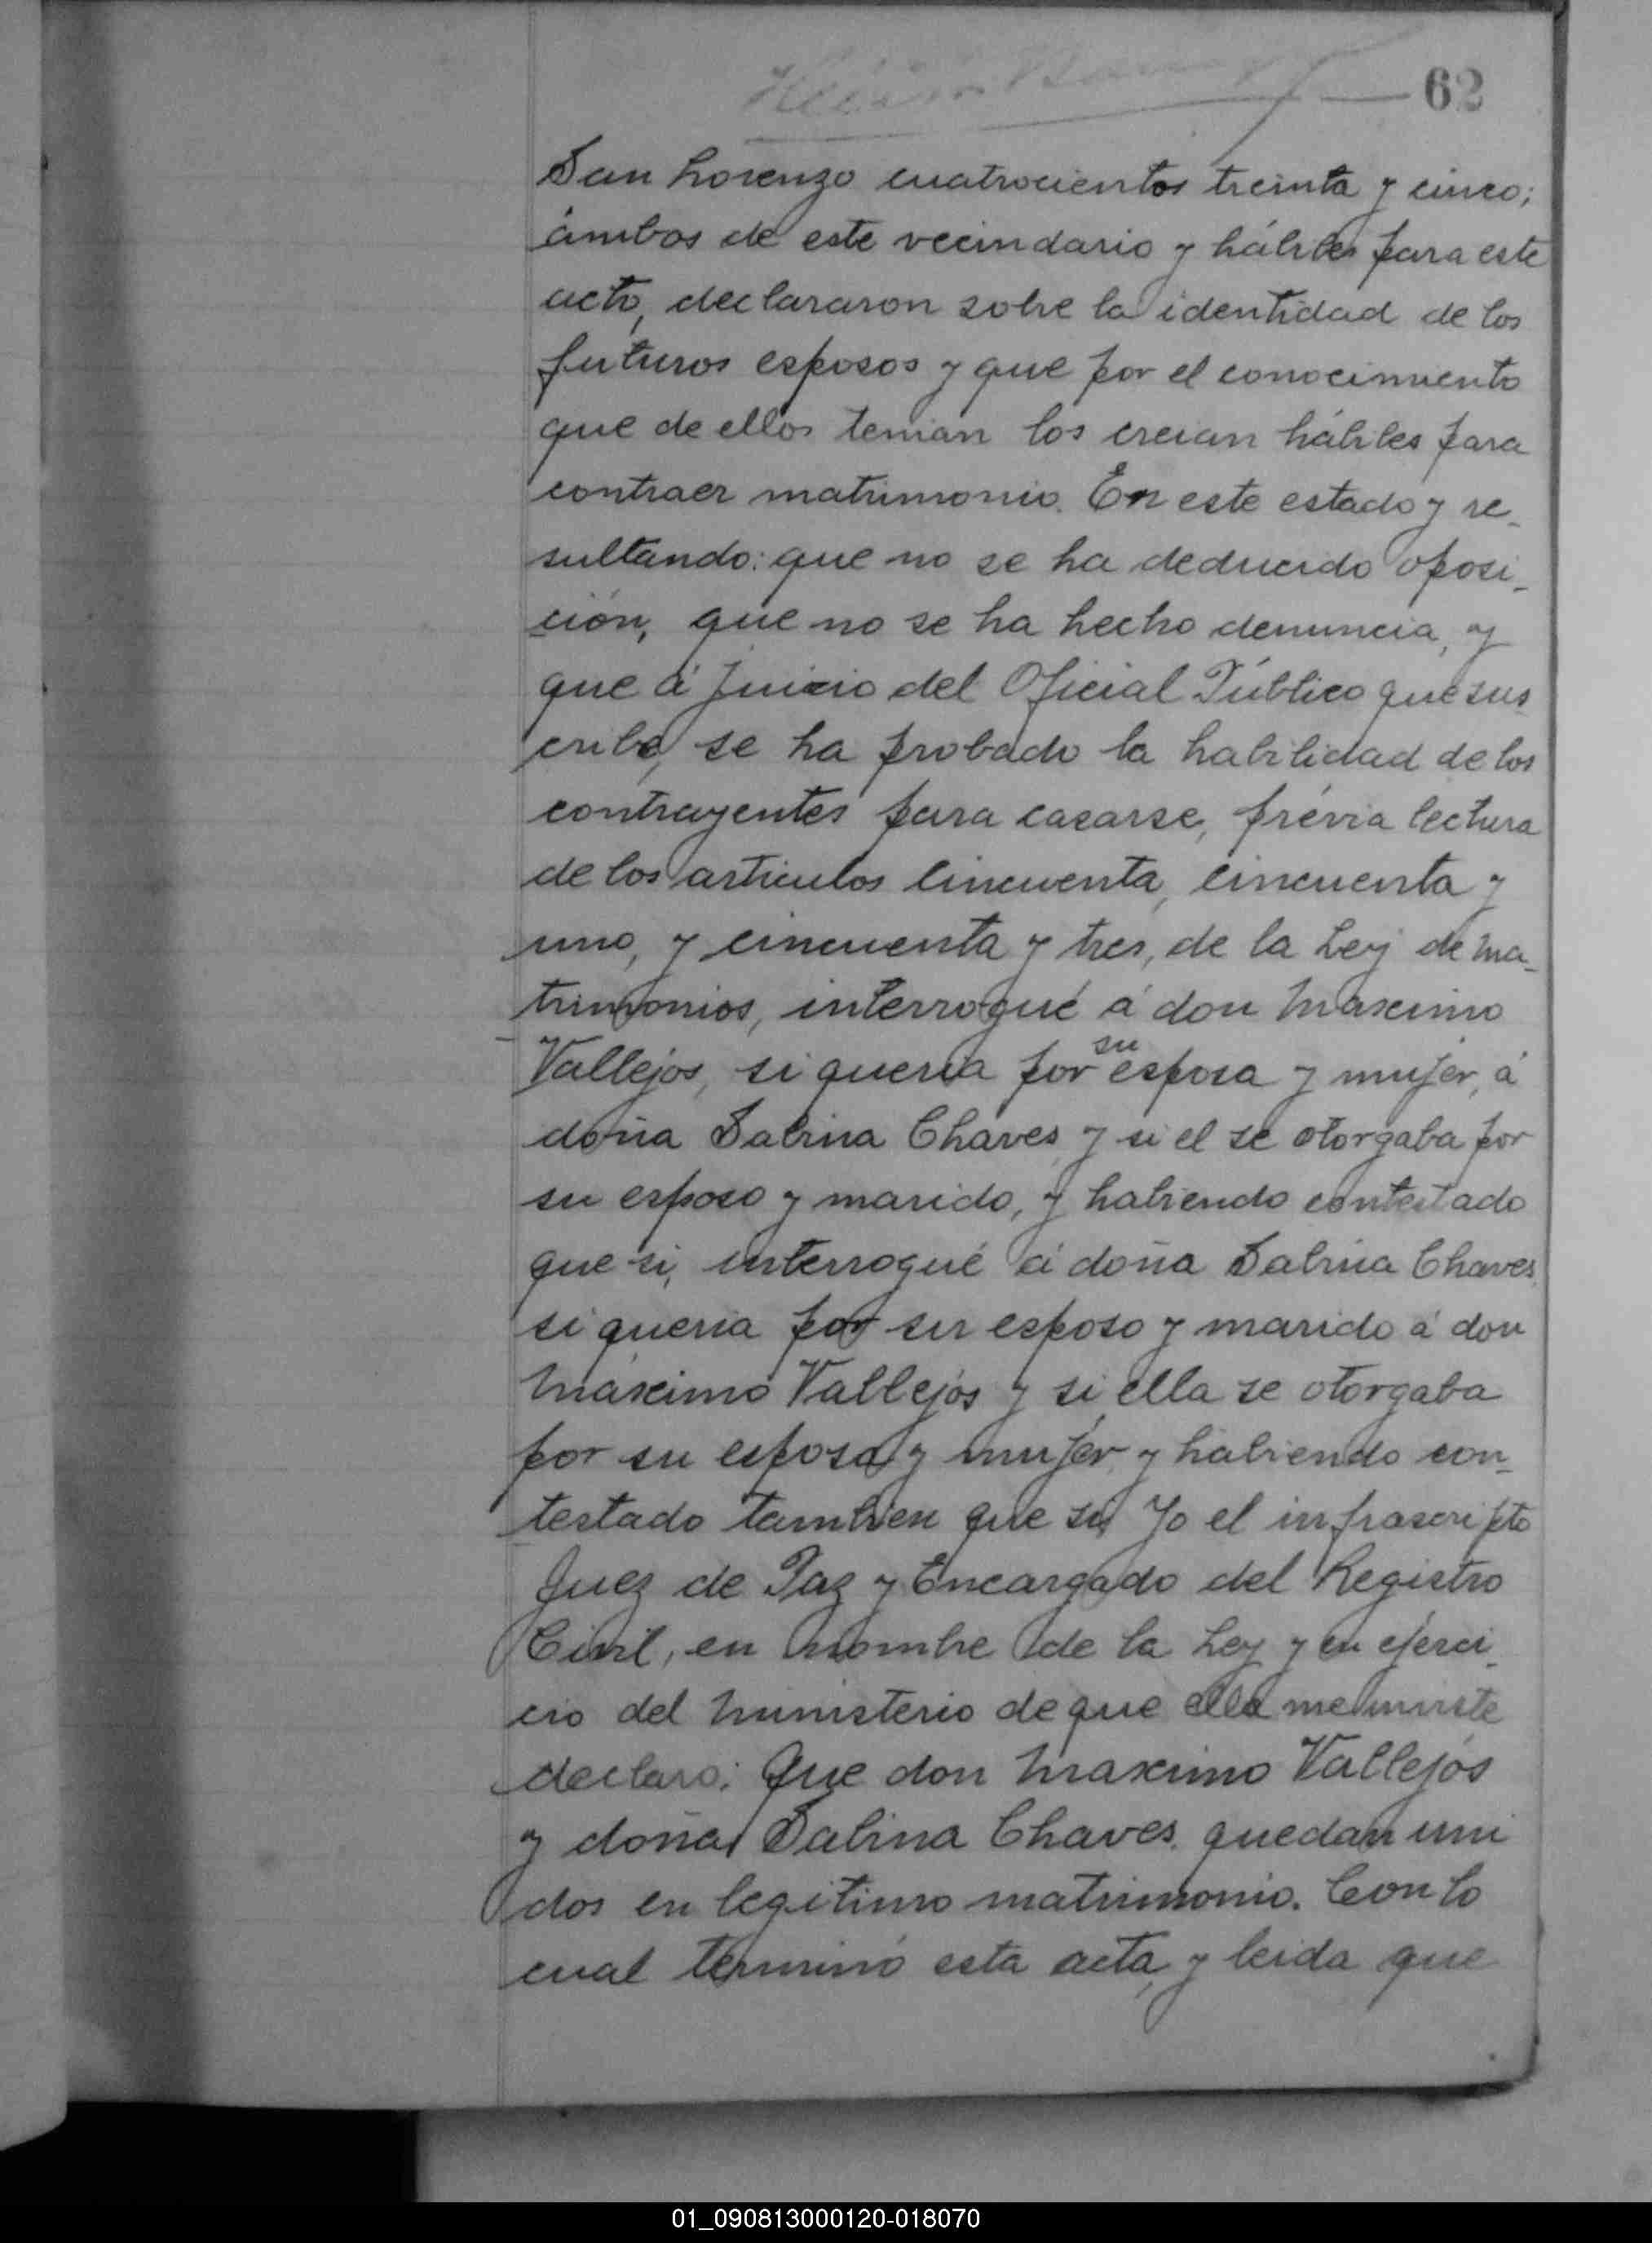 62
San Lorenzo cuatrocientos treinta y cinco;
ámbos de este vecindario y hábiles para este
acto, declararon sobre la identidad de los
futuros esposos y que por el conocimiento
que de ellos tenian los creian hábiles para
contraer matrimonio. En este estado y re-
sultando: que no se ha deducido oposi-
ción, que no se ha hecho denuncia, y
que á juicio del Oficial Público que sus
cribe, se ha probado la habilidad de los
contrayentes para casarse, prévia lectura
de los articulos cincuenta, cincuenta y
uno, y cincuenta y tres, de la Ley de Ma-
trimonios, interrogué á don Maximo
Vallejos, si queria por su esposa y mujer, á
doña Sabina Chaves, y si el se otorgaba por
su esposo y marido, y habiendo contestado
que si, interrogué á doña Sabina Chaves,
si queria por su esposo y marido á don
Máximo Vallejos y si ella se otorgaba
por su esposa y mujer, y habiendo con-
testado tambien que si, Yo el infrascripto
Juez de Paz y Encargado del Registro
Civil, en nombre de la Ley y en ejerci-
cio del Ministerio de que ella me inviste
declaro: Que don Maximo Vallejos
y doña Sabina Chaves, quedan uni
dos en legitimo matrimonio. Con lo
cual terminó esta acta, y leida que
01_090813000120-018070